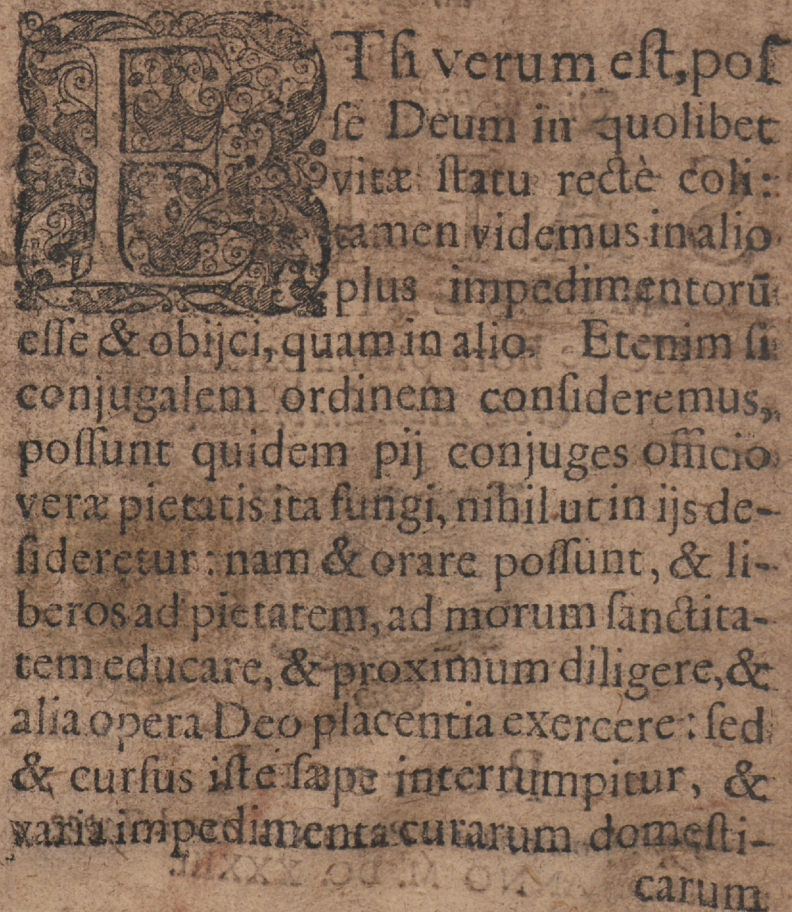 ETſi verum eſt, poſ
ſe Deum in quolibet
vitæ ſtatu rectè coli:
tamen videmus in alio
plus impedimentorū
eſſe & obijci, quam in alio. Etenim ſi
conjugalem ordinem conſideremus,
poſſunt quidem pij conjuges officio
veræ pietatis ita fungi, nihil ut in ijs de-
ſideretur: nam & orare poſſunt, & li-
beros ad pietatem, ad morum ſanctita-
tem educare, & proximum diligere, &
alia opera Deo placentia exercere: ſed
& curſus iſte ſæpe interrumpitur, &
varia impedimenta curarum domeſti-
carum